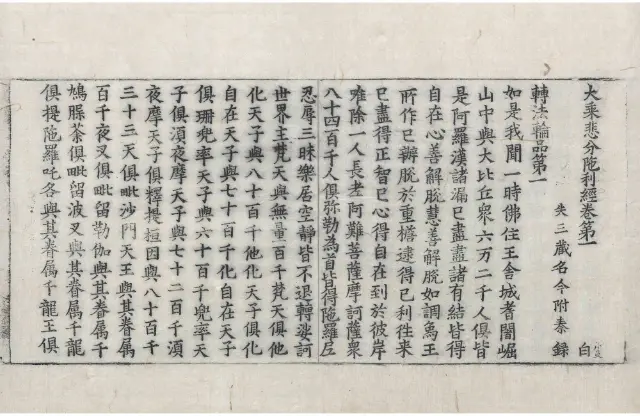 大乘悲分陁利經卷第一
失三藏名今附秦錄 白
轉法輪品第一
如是我聞一時佛住王舍城耆闍崛
山中與大比丘衆六万二千人俱皆
是阿羅漢諸漏已盡盡諸有結皆得
自在心善解脫慧善解脫如調馬王
所作已辦脫於重檐逮得已利往来
已盡得正智已心得自在到於彼岸
唯除一人長老阿難菩薩摩訶薩衆
八十四百千人俱弥勒為首皆得陁羅尼
忍辱三昧樂居空静皆不退轉娑訶
世界主梵天與無量百千梵天俱他
化天子與八十百千他化天子俱化
自在天子與七十百千化自在天子
俱珊兜率天子與六十百千兜率天
子俱湏夜摩天子與七十二百千湏
夜摩天子俱釋提桓因與八十百千
三十三天俱毗沙門天王與其眷属
百千夜叉俱毗留勒伽與其眷属千
鳩荼俱毗留波叉與其眷属千龍
俱提陁羅吒各與其眷属千龍王俱